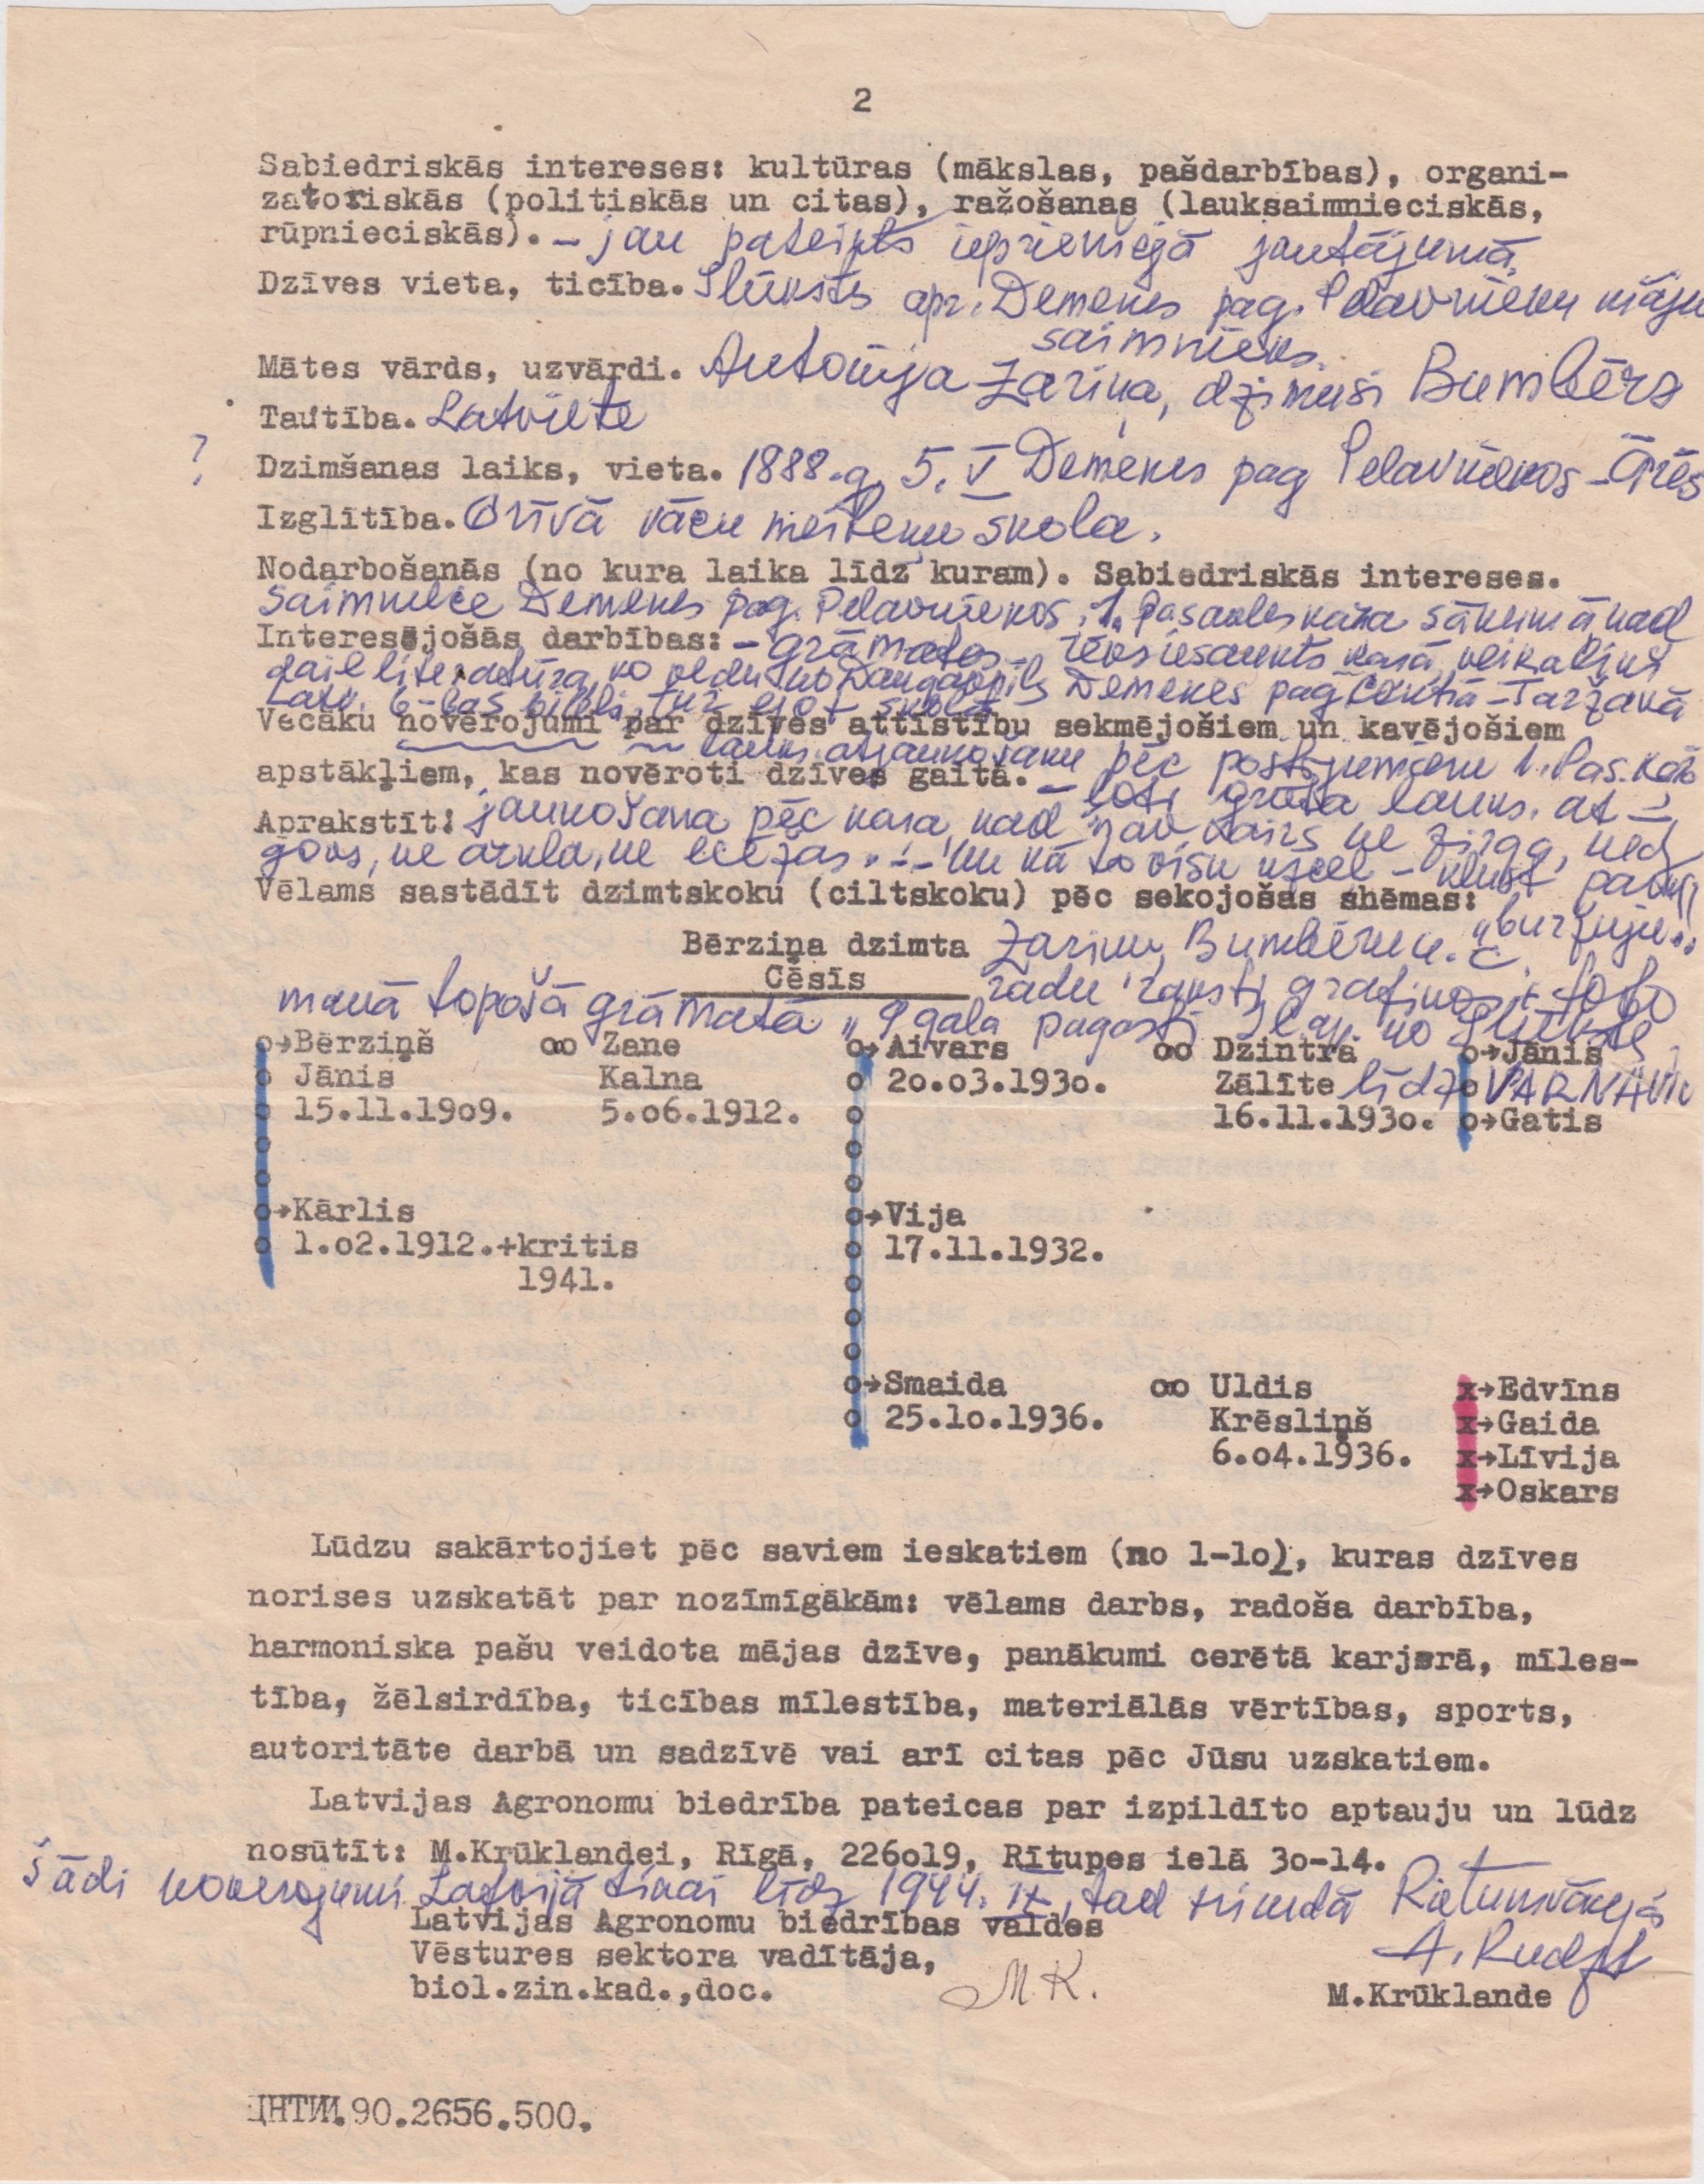 2
Sabiedriskās intereses: kultūras (mākslas, pašdarbības), organi-
zatoriskās (politiskās un citas), ražošanas (lauksaimnieciskās,
rūpnieciskās). - jau pateikts iepriekšējā jautājumā.
Dzīves vieta, ticība. Ilūkstes apr. Demenes pag. Pelavnieku māju
saimnieks.
Mātes vārds, uzvārdi. Antoņija Zariņa, dzimusi Bumbērs
Tautība. Latviete
? Dzimšanas laiks, vieta. 1888.g. 5. V Demenes pag Pelavniekos -
Izglītība. Grīvā vācu meiteņu skola.
Nodarbošanās (no kura laika līdz kuram). Sabiedriskās intereses.
Saimniece Demenes pag. Pelavniekos, 1. Pasaules kara sākumā kad
Interesējošās darbības: - grāmatas - tēvs iesaukts karā, veikaliņš
daiļliteratūra, ko veda no Daugavpils Demenes pag centrā -
Latv. skolā
Vecāku novērojumi par dzīves attīstību sekmējošiem un kavējošiem
lauks. atjaunošanu pēc postījumiem 1. Pas. kara
apstākļiem, kas novēroti dzīves gaitā. - ļoti grūta lauks. at-
Aprakstīt! jaunošana pēc kara, kad nav vairs ne zirga, ne
govs, ne arkla, ne ecēžas. - un kā to visu uzcel - kļūst par
Vēlams sastādīt dzimtskoku (ciltskoku) pēc sekojošas shēmas:
"buržuju"
Bērziņa dzimta Zariņu, Bumbēru u.c.
Cēsīs radu raksti
manā topošā grāmatā " gala pagasti no Ilūkstes
o→Bērziņš oo Zane o→Aivars oo Dzintra o→Jānis
o Jānis Kalna o 20.03.1930. Zālīte līdz o VARNAVIN
o 15.11.1909. 5.06.1912. o 16.11.1930. o→Gatis
o o
o o
o→Kārlis o→Vija
o 1.02.1912.+kritis o 17.11.1932.
1941. o
o
o
o→Smaida oo Uldis x→Edvīns
o 25.10.1936. Krēsliņš x→Gaida
6.04.1936. x→Līvija
x→Oskars
Lūdzu sakārtojiet pēc saviem ieskatiem (no 1-10), kuras dzīves
norises uzskatāt par nozīmīgākām: vēlams darbs, radoša darbība,
harmoniska pašu veidota mājas dzīve, panākumi cerētā karjerā, mīles-
tība, žēlsirdība, ticības mīlestība, materiālās vērtības, sports,
autoritāte darbā un sadzīvē vai arī citas pēc Jūsu uzskatiem.
Latvijas Agronomu biedrība pateicas par izpildīto aptauju un lūdz
nosūtīt: M.Krūklandei, Rīgā, 226019, Rītupes ielā 30-14.
Šādi novērojumi Latvijā tikai līdz 1944. IX, tad trimdā Rietumvācijā
Latvijas Agronomu biedrības valdes
Vēstures sektora vadītāja,
biol.zin.kad.,doc. M.K.
M.Krūklande
ЦНТИИ.90.2656.500.